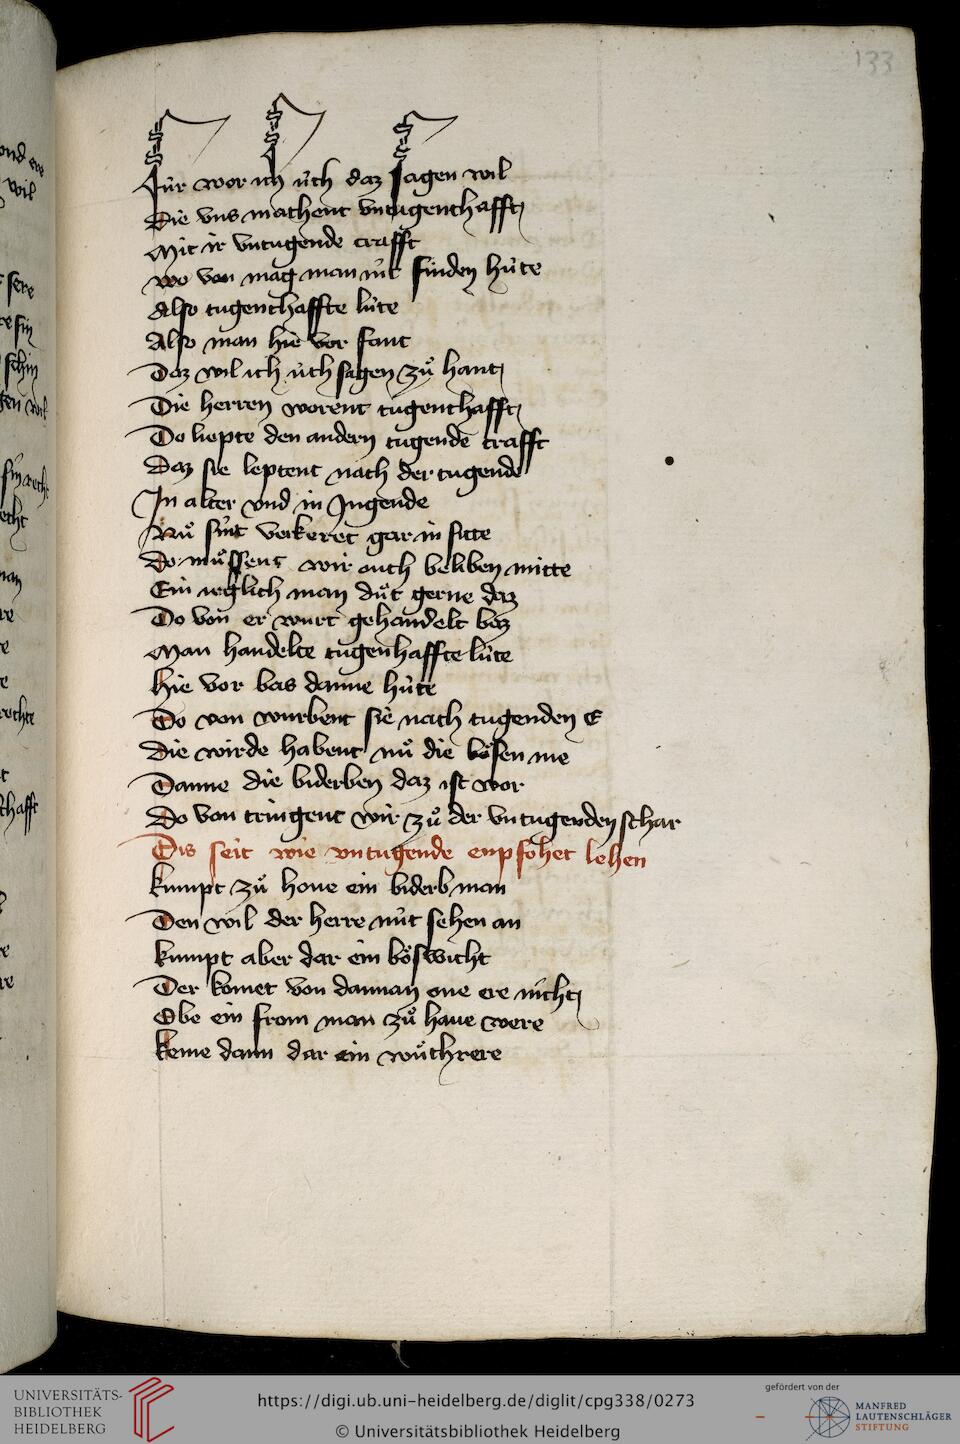 133
Fúr wor ich úch daz sagen wil
Die vns machent vntugenthafft
Mit ir vntugende crafft
Wo von mag man nút finden húte
Also tugenthaffte lúte
Also man hie vor fant
Daz wil ich úch sagen zů hant
Die herren worent tugenthafft
Do liepte den andern tugende crafft
Daz sie leptent nach der tugende
In alter vnd in Jugende
Nů sint verkeret gar in sitte
Do müssent wir ouch beliben mitte
Ein ieglich man důt gerne daz
Do von er wurt gehandelt baz
Man handelte tugenhaffte lúte
Hie vor bas danne húte
Do von wurbent sie nach tugenden E
Die wirde habent nů die bösen me
Danne die biderben daz ist wor
Do von tringent wir zů der vntugenden schar
Dis seit wie vntugende enpfohet lehen
Kumpt zů houe ein biderb man
Den wil der herre nút sehen an
Kumpt aber dar ein böswicht
Der komet von dannan one ere nicht
Ebe ein from man zů haue were
Keme dann dar ein wůthrere
UNIVERSITÄTS-
BIBLIOTHEK
HEIDELBERG
https://digi.ub.uni-heidelberg.de/diglit/cpg338/0273
© Universitätsbibliothek Heidelberg
gefördert von der
MANFRED
LAUTENSCHLÄGER
STIFTUNG